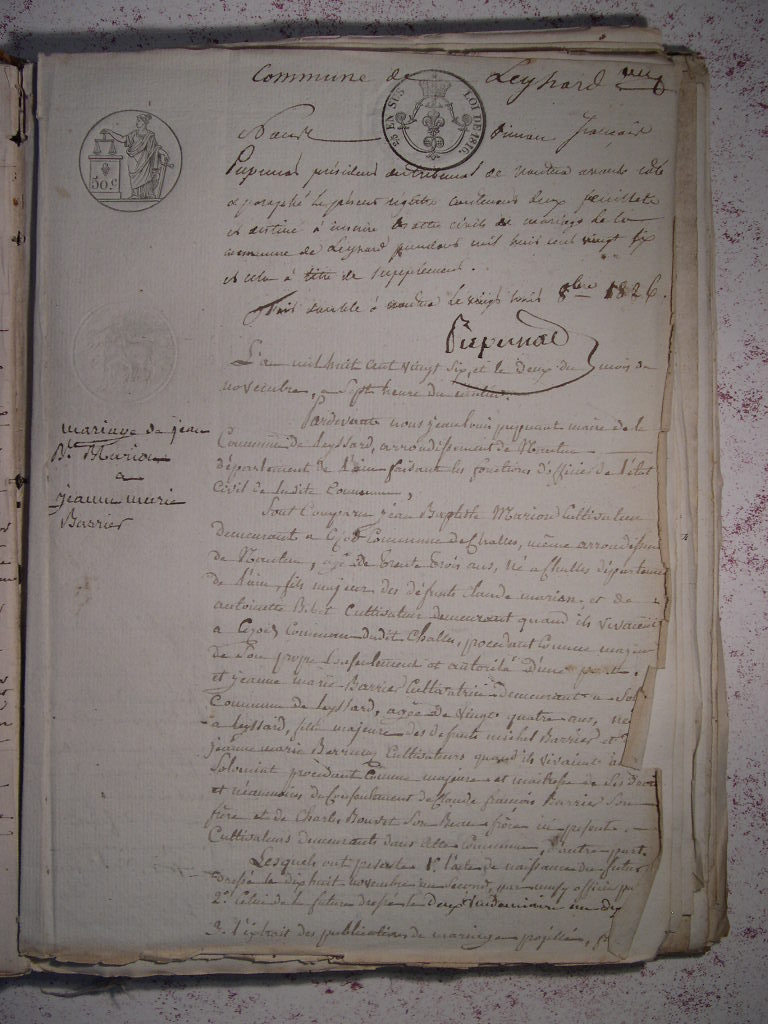 Commune de Leyssard
25 EN SUS LOI DE 1816.
50 c
Nous
président du tribunal de Nantua avons coté
& paraphé le présent registre contenant deux feuillets
et destiné à inscrire les actes civils de mariage de la
commune de Leyssard pendant mil huit cent vingt six
et cela à titre de supplément.
Fait double à Nantua le vingt trois 8bre 1826.
L'an mil huit cent vingt six, et le deux du mois de
novembre, a Sept heure du matin.
Pardevant nous jean louis maire de la
Commune de Leyssard, arrondissement de Nantua
département de l'ain faisant les fonctions d'officier de l'état
Civil de ladite Commune,
mariage de jean
Bte Marion
a
jeanne marie
Barrier
Sont Comparu jean Baptiste Marion Cultivateur
demeurant a Commune de Challes, même arrondissem
de Nantua, agé de trente trois ans, né a Challes départeme
de l'ain, fils majeur des défunts claude marion, et de
antoinette Cultivateurs demeurant quand ils vivaient
a Commune dudit Challes, procédant Comme majeur
de Son propre Consentement et autorité D'une part.
et jeanne marie Barrier Cultivatrice demeurant a Sol
Commune de Leyssard, agée de vingt quatre ans, née
a Leyssard, fille majeure des defunts michel Barrier et
jeanne marie Cultivateurs quand ils vivaient a
Solomiat procédant Comme majeure et maitresse de Ses droi
et néanmoins du Consentement de Claude françois Barrier Son
frère et de Charles Son Beau frère ici présents
Cultivateurs demeurants dans cette Commune, D'autre part.
Lesquels ont présenté 1° l'acte de naissance du futur
dressé le dix huit novembre an Second, par officier pu
2.° Celui de la future dressé le Deux Vendemiaire an dix
3. l'extrait des publications de mariage projettée,